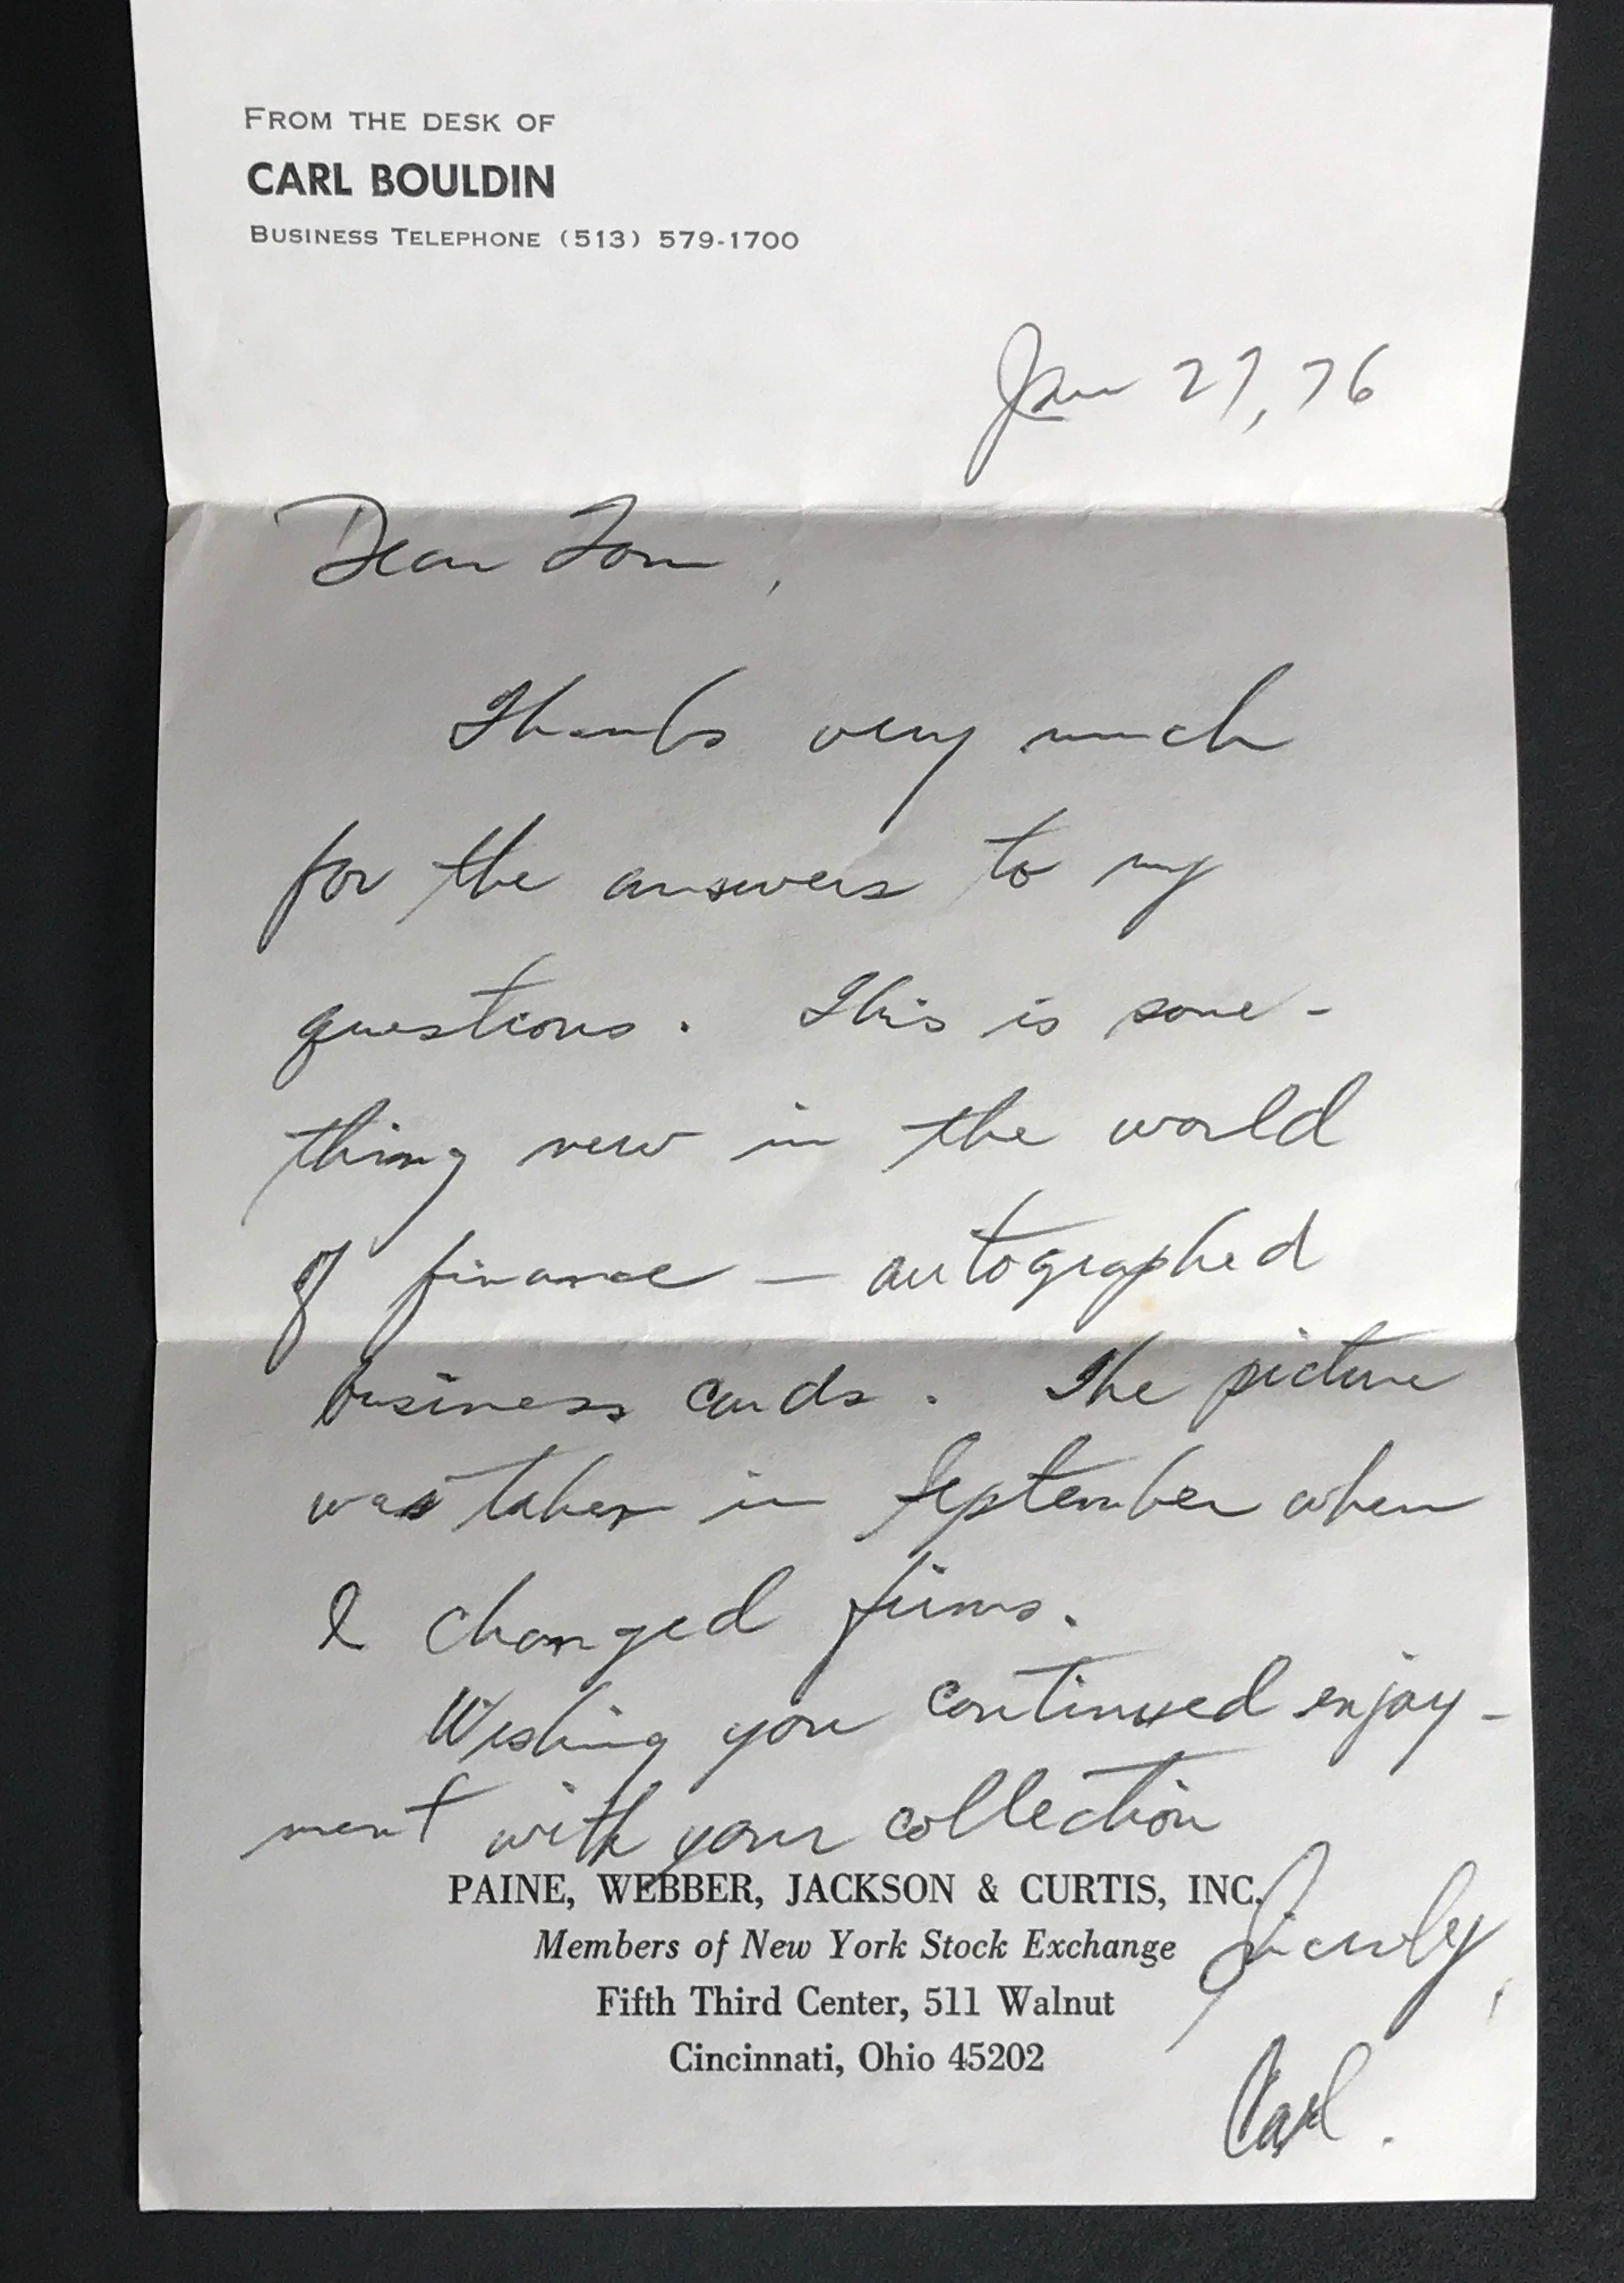 FROM THE DESK OF
CARL BOULDIN
BUSINESS TELEPHONE (513) 579-1700
Jan 27, 76
Dear Tom,
Thanks very much
for the answers to my
questions. This is some-
thing new in the world
of finance — autographed
business cards. The picture
was taken in September when
I changed firms.
Wishing you continued enjoy-
ment with your collection
PAINE, WEBBER, JACKSON & CURTIS, INC.
Members of New York Stock Exchange
Sincerely,
Fifth Third Center, 511 Walnut
Cincinnati, Ohio 45202
Carl.